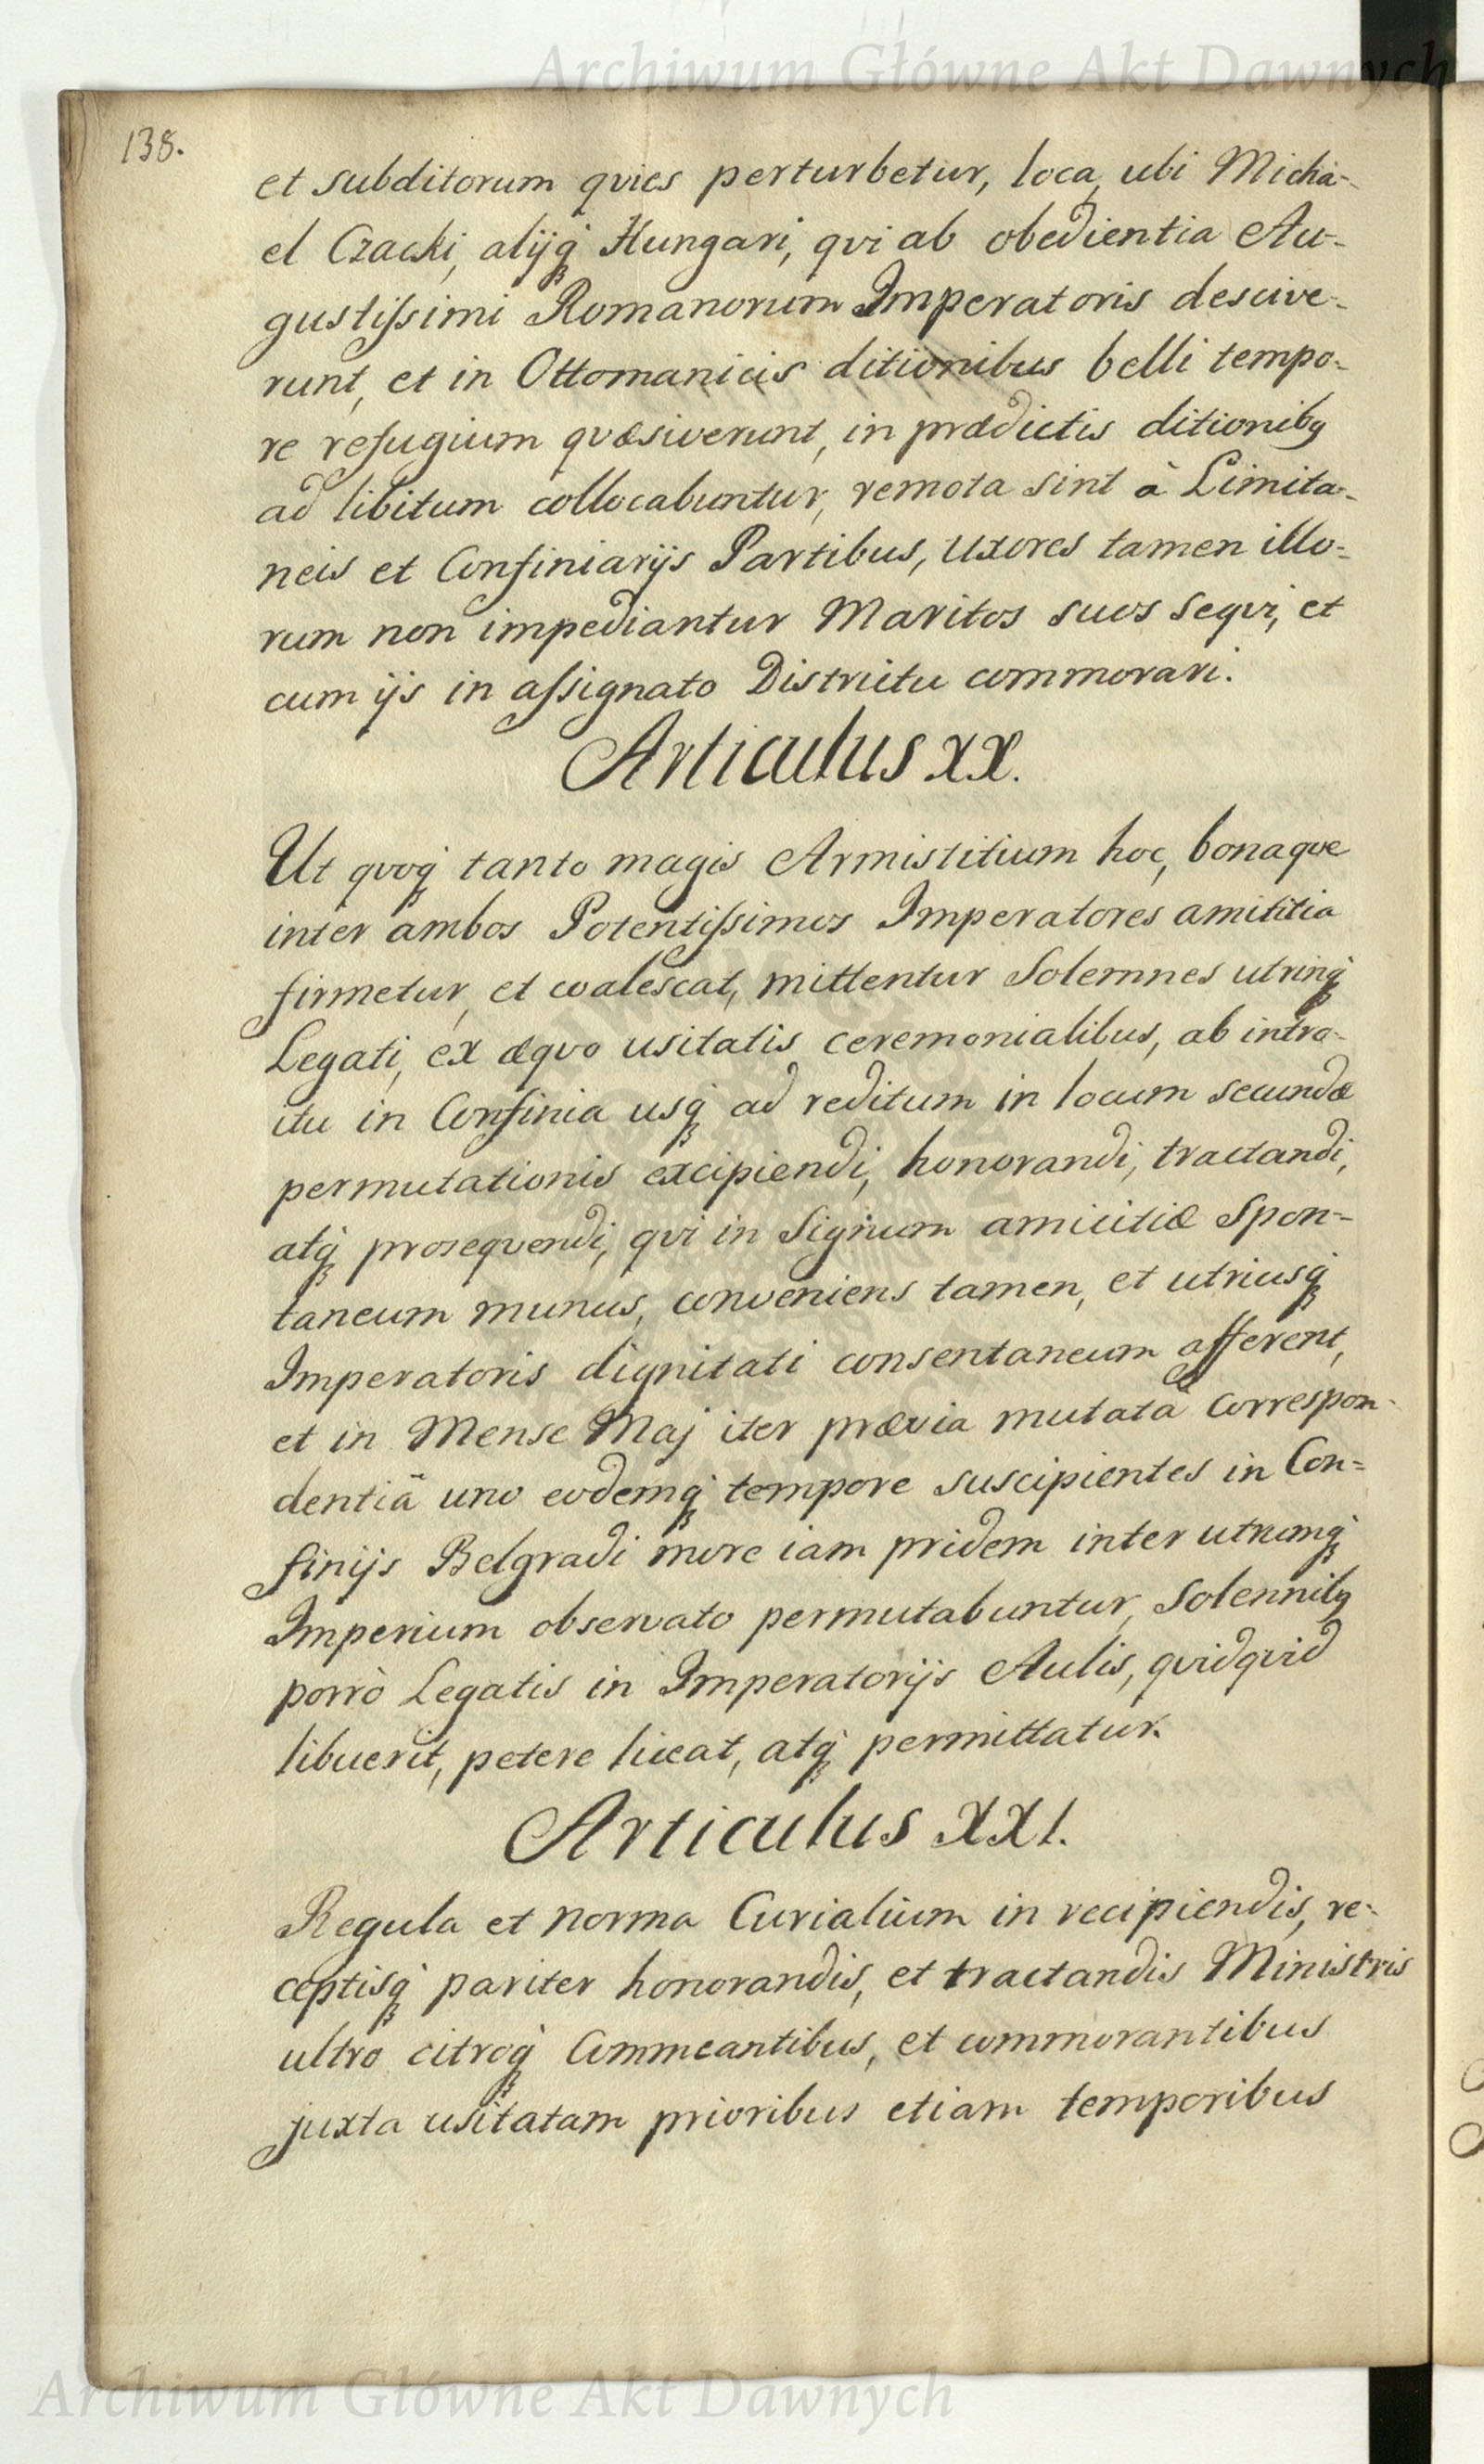 Archiwum Główne Akt Dawnych
138.
et subditorum qvies perturbetur, loca, ubi Micha-
el Czacki, alijq́ꝫ Hungari, qvi ab obedientia Au-
gustiſsimi Romanorum Imperatoris descive-
runt, et in Ottomanicis ditionibus belli tempo-
re refugium qvæsiverunt, in prædictis ditionibꝫ
ad libitum collocabuntur, remota sint à Limita-
neis et Confiniarijs Partibus, Uxores tamen illo-
rum non impediantur Maritos suos seqvi, et
cum ijs in aſsignato Districtu commorari.
Articulus XX.
Ut qvoq́ꝫ tanto magis Armistitium hoc, bonaqve
inter ambos Potentiſsimos Imperatores amititia
firmetur, et coalescat, mittentur Solemnes utrinq́ꝫ
Legati, ex æqvo usitatis ceremonialibus, ab intro-
itu in Confinia usq́ꝫ ad reditum in locum secundæ
permutationis excipiendi, honorandi, tractandi,
atq́ꝫ proseqvendi, qvi in Signum amicitiæ Spon-
taneum munus, conveniens tamen, et utriusq́ꝫ
Imperatoris dignitati consentaneum afferent,
et in Mense Maj iter prævia mutatâ correspon-
dentiâ uno eodemq́ꝫ tempore suscipientes in Con-
finijs Belgradi more iam pridem inter utrumq́ꝫ
Imperium observato permutabuntur, Solennibꝫ
porrò Legatis in Imperatorijs Aulis, qvidqvid
libuerit, petere liceat, atq́ꝫ permittatur.
Articulus XXI.
Regula et norma Curialium in recipiendis, re-
ceptisq́ꝫ pariter honorandis, et tractandis Ministris
ultro citroq́ꝫ Commeantibus, et commorantibus
juxta usitatam prioribus etiam temporibus
Archiwum Główne Akt Dawnych